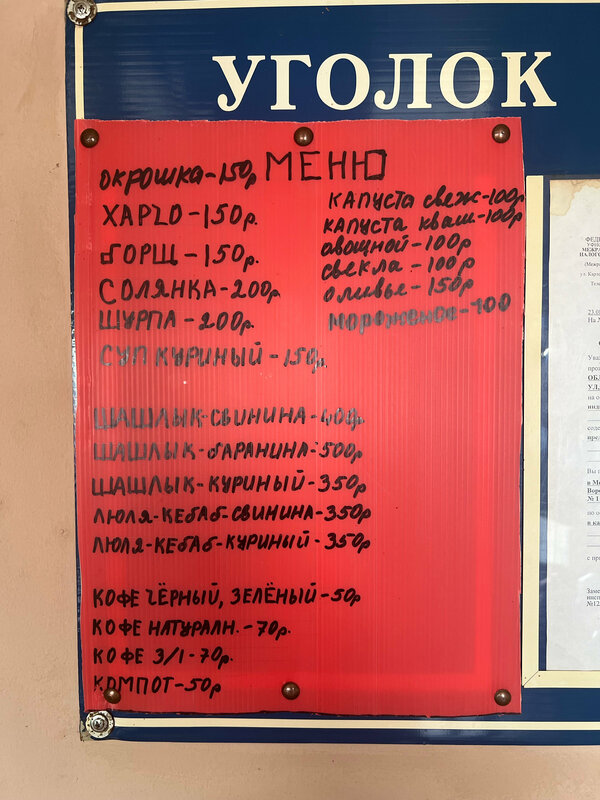 УГОЛОК
МЕНЮ
ОКРОШКА-150р
ХАРЧО-150р.
БОРЩ-150р.
СОЛЯНКА-200р
ШУРПА-200р.
СУП КУРИНЫЙ-150р.
КАПУСТА свеж-100р
КАПУСТА кваш-100р
овощной-100р
свекла-100р
оливье-150р
мороженое-100
ШАШЛЫК-СВИНИНА-400р
ШАШЛЫК-БАРАНИНА-500р
ШАШЛЫК-КУРИНЫЙ-350р
ЛЮЛЯ-КЕБАБ-СВИНИНА-350р
ЛЮЛЯ-КЕБАБ-КУРИНЫЙ-350р
КОФЕ ЧЁРНЫЙ, ЗЕЛЁНЫЙ-50р
КОФЕ НАТУРАЛН.-70р.
КОФЕ 3/1-70р.
КОМПОТ-50р